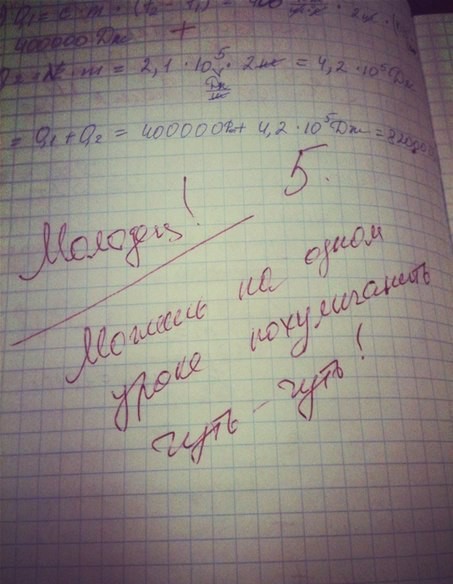 Q₁ = c · m · (t₂ - t₁) = 400 · 2
400000 Дж +
· m = 2,1 · 10⁵ Дж/кг · 2кг = 4,2 · 10⁵ Дж
= Q₁ + Q₂ = 400000Дж + 4,2 · 10⁵ Дж = 8200
5.
Молодец!
Можешь на одном
уроке похулиганить
чуть-чуть!